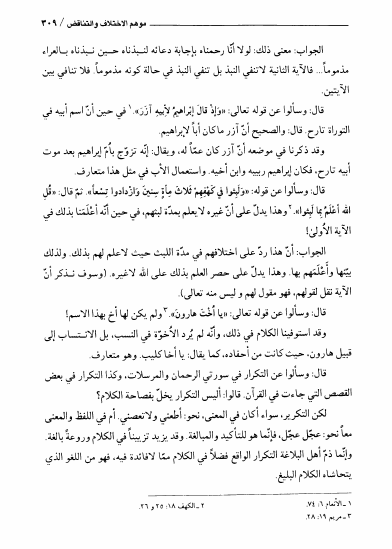 موهم الاختلاف والتناقض / ٣٠٩
الجواب: معنى ذلك: لولا أنّا رحمناه بإجابة دعائه لنبذناه حـين نـبذناه بـالعراء
مذموماً... فالآية الثانية لاتنفي النبذ بل تنفي النبذ في حالة كونه مذموماً. فلا تنافي بين
الآيتين.
قال: وسألوا عن قوله تعالى: «وَإِذْ قالَ إبْراهيمُ لأِبيهِ آزَرَ».١ في حين أنّ اسم أبيه في
التوراة تارح. قال: والصحيح أنّ آزر ماكان أباً لإبراهيم.
وقد ذكرنا في موضعه أنّ آزر كان عمّاً له، ويقال: إنّه تزوّج بأُمّ إبراهيم بعد موت
أبيه تارح، فكان إبراهيم ربيبه وابن أخيه. واستعمال الأب في مثل هذا متعارف.
قال: وسألوا عن قوله: «وَلَبِثوا في كَهْفِهِمْ ثَلاثَ مِأةٍ سِنينَ وَازْدادُوا تِسْعاً». ثمّ قال: «قُلِ
اللهُ أعْلَمُ بِما لَبِثوا».٢ وهذا يدلّ على أنّ غيره لايعلم بمدّة لبثهم، في حين أنّه أعْلَمَنا بذلك في
الآية الأُولىٰ!
الجواب: أنّ هذا ردّ على اختلافهم في مدّة اللبث حيث لاعلم لهم بذلك. ولذلك
بيّنها وأَعْلَمَهم بها. وهذا يدلّ على حصر العلم بذلك على الله لاغيره. (وسوف نـذكر أنّ
الآية نقل لقولهم، فهو مقول لهم وليس منه تعالى).
قال: وسألوا عن قوله تعالى: «يا أُخْتَ هارونَ».٣ ولم يكن لها أخ بهذا الاسم!
وقد استوفينا الكلام في ذلك، وأنّه لم يُرد الأُخوّة في النسب، بل الانـتساب إلى
قبيل هارون، حيث كانت من أحفاده، كما يقال: يا أخا كليب. وهو متعارف.
قال: وسألوا عن التكرار في سورتي الرحمان والمرسلات، وكذا التكرار في بعض
القصص التي جاءت في القرآن. قالوا: أليس التكرار يخلّ بفصاحة الكلام؟
لكن التكرير، سواء أكان في المعنى، نحو: أطعني ولاتعصني. أم في اللفظ والمعنى
معاً نحو: عجّل عجّل، فإنّما هو للتأكيد والمبالغة. وقد يزيد تزييناً في الكلام وروعةً بالغة.
وإنّما ذمّ أهل البلاغة التكرار الواقع فضلاً في الكلام ممّا لافائدة فيه، فهو من اللغو الذي
يتحاشاه الكلام البليغ.
١ ـ الأنعام ٦: ٧٤. ٢ ـ الكهف ١٨: ٢٥ و ٢٦.
٣ ـ مريم ١٩: ٢٨.